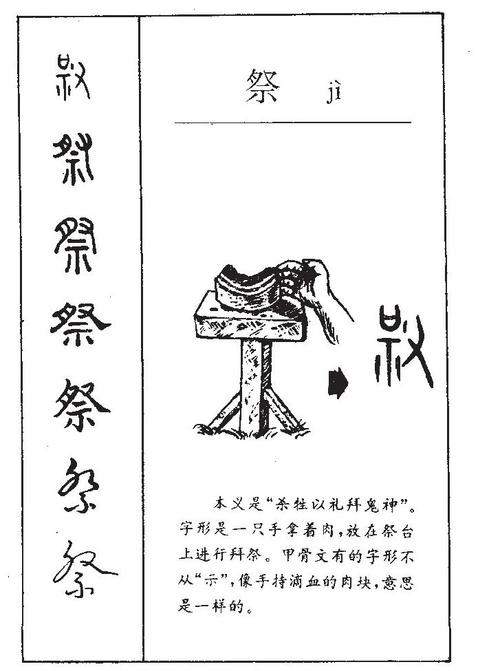 祭 jì
祭
祭
祭
祭
祭
祭
祭
本义是“杀牲以礼拜鬼神”。
字形是一只手拿着肉,放在祭台
上进行拜祭。甲骨文有的字形不
从“示”,像手持滴血的肉块,意思
是一样的。